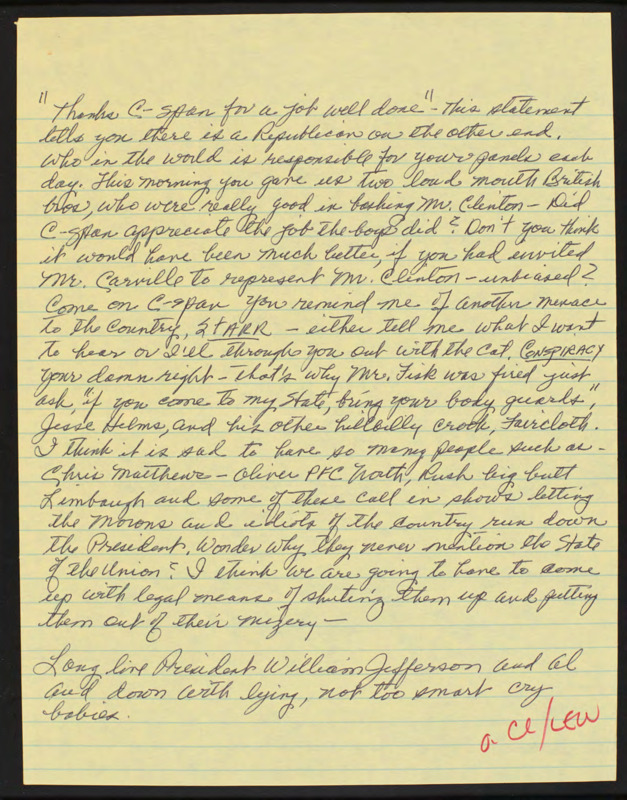 "Thanks C-span for a job well done" - this statement
tells you there is a Republican on the other end.
Who in the world is responsible for your panels each
day. This morning you gave us two loud mouth British
bros, who were really good in bashing Mr. Clinton - Did
C-span appreciate the job the boys did? Don't you think
it would have been much better, if you had invited
Mr. Carville to represent Mr. Clinton - unbiased?
Come on C-span you remind me of another menace
to the Country, StARR - either tell me what I want
to hear or I'el through you out with the Cat. CONSPIRACY
your damn right - that's why Mr. Fisk was fired just
ask, "if you come to my State, bring your body guards",
Jesse Helms, and his other hillbilly crook, Faircloth.
I think it is sad to have so many people such as -
Chris Matthews - Oliver PFC North, Rush big butt
Limbaugh and some of these call in shows letting
the morons and idiots of the country run down
the President. Wonder why they never mention the State
of the Union? I think we are going to have to come
up with legal means of shuting them up and putting
them out of their mizery -
Long live President William Jefferson and Al
and down with lying, not too smart cry
babies.